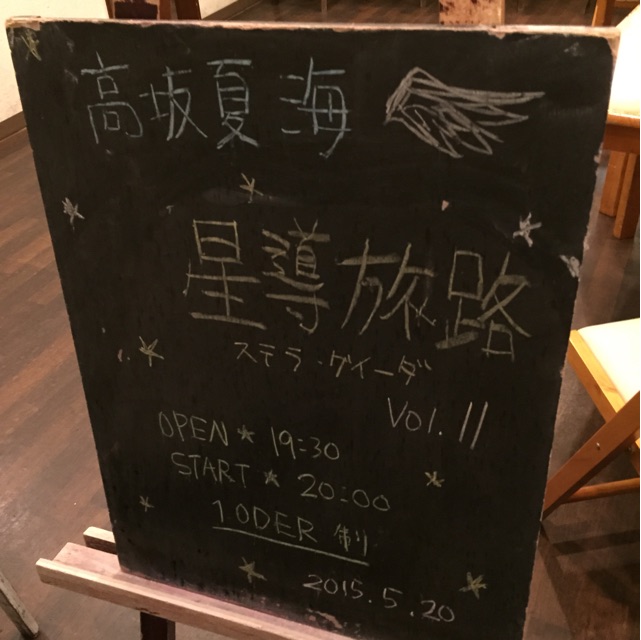 高坂夏海
星導旅路
ステラ・ゲイーダ
Vol. 11
OPEN ★ 19:30
START ★ 20:00
1 ODER 制
2015.5.20